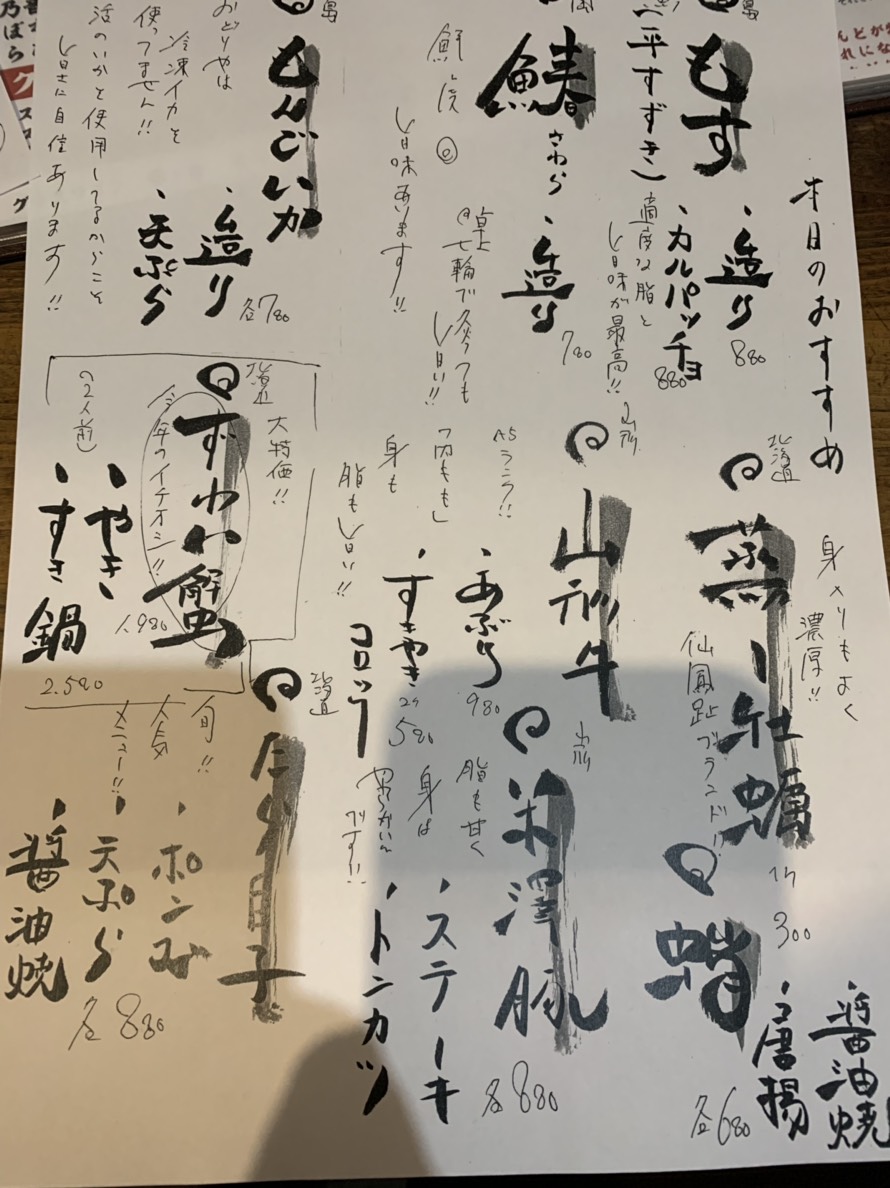 本日のおすすめ
もす
(平すずき)
・造り
880
・カルパッチョ
880
適度な脂と
旨味が最高!!
鰆
さわら
・造り
780
鮮度◎
旨味あります!!
@卓上
七輪で炙っても
旨い!!
もんごいか
・造り
・天ぷら
各780
おどりやは
冷凍イカを
使ってません!!
活のいかを使用してるからこそ
旨さに自信あります!!
北海道
蒸し牡蠣
身入りもよく
濃厚!!
仙鳳趾ブランド!!
300
山形
山形牛
A5ランク!!
「内もも」
身も
脂も旨い!!
・あぶり
980
・すきやき
コロッケ
580
北海道
ずわい蟹
大特価!!
今年のイチオシ!!
・やき
1,980
・すき鍋
2,580
(2人前)
蛸
・醤油焼
・唐揚
各680
山形
米澤豚
脂も甘く
身は
柔らかい
です!!
・ステーキ
・トンカツ
各880
北海道
たち白子
旬!!
人気
メニュー!!
・ポン酢
・天ぷら
・醤油焼
各880